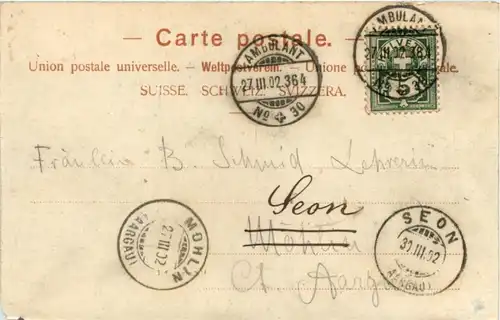 Carte postale.
Union postale universelle. – Weltpostverein. – Unione postale universale.
SUISSE. SCHWEIZ. SVIZZERA.
AMBULANT
27.III.02.364
No 30
AMBULANT
27.III.02.364
No 30
5
Fräulein B. Schmid Lehrerin
Seon
Möhlin
Ct. Aargau
MÖHLIN
27.III.02
(AARGAU)
SEON
30.III.02
(AARGAU)